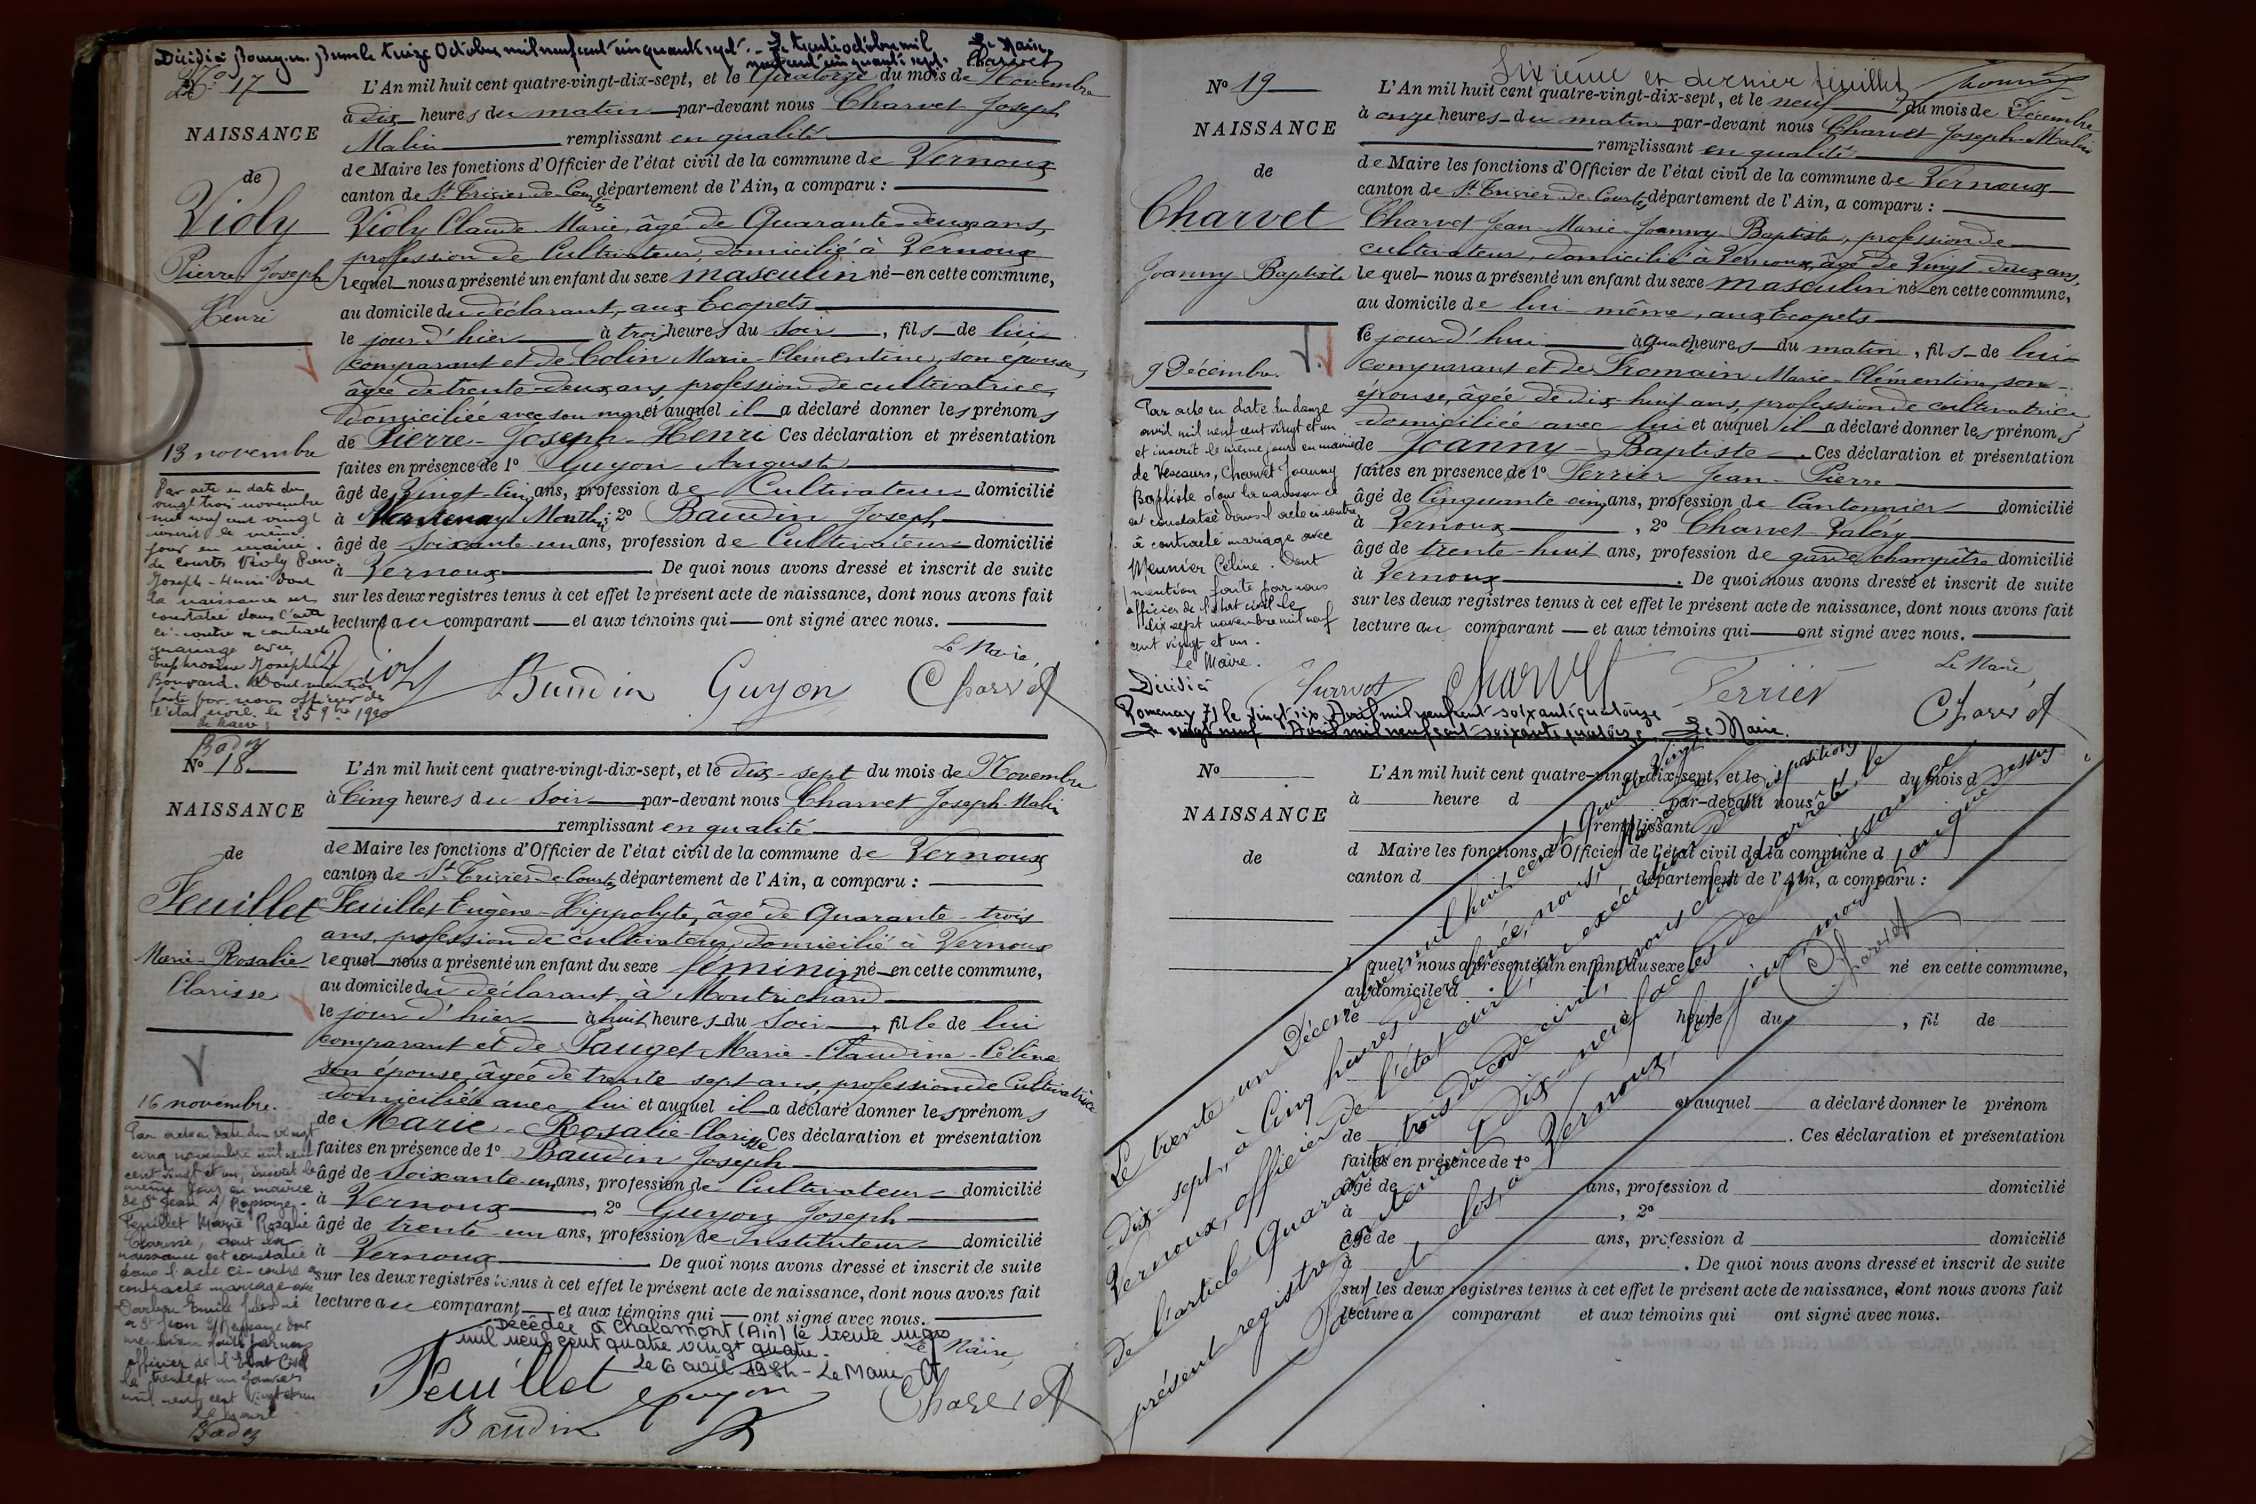 Décédé à Bourg-en-Bresse le treize Octobre mil neuf cent cinquante sept. - Le trente octobre mil
neuf cent cinquante sept. Le Maire,
Charvet
N° 17
NAISSANCE
de
Violy
Pierre Joseph
Henri
13 novembre
Par acte en date du
vingt trois novembre
mil neuf cent vingt
inscrit le même
jour en mairie
de Courtes Violy Pierre
Joseph-Henri dont
la naissance est
constatée dans l'acte
ci-contre a contracté
mariage avec
Euphrosine Joséphine
Bouvard. Dont mention
faite par nous officier de
l'état civil le 25 9bre 1920
le Maire,
Badez
L'An mil huit cent quatre-vingt-dix-sept, et le Quatorze du mois de Novembre
à dix heures du matin par-devant nous Charvet Joseph
Malin remplissant en qualité
de Maire les fonctions d'Officier de l'état civil de la commune de Vernoux
canton de St Trivier de Courtes département de l'Ain, a comparu :
Violy Claude Marie, âgé de Quarante-deux ans,
profession de Cultivateur, domicilié à Vernoux
lequel nous a présenté un enfant du sexe masculin né en cette commune,
au domicile du déclarant, aux Ecopets
le jour d'hier à trois heures du soir, fils de lui
comparant et de Colin Marie-Clémentine, son épouse,
âgée de trente-deux ans, profession de cultivatrice,
domiciliée avec son mari et auquel il a déclaré donner les prénoms
de Pierre-Joseph-Henri Ces déclaration et présentation
faites en présence de 1° Guyon Auguste
âgé de Vingt-cinq ans, profession de Cultivateur domicilié
à Mantenay Montlin, 2° Baudin Joseph
âgé de soixante-un ans, profession de Cultivateur domicilié
à Vernoux. De quoi nous avons dressé et inscrit de suite
sur les deux registres tenus à cet effet le présent acte de naissance, dont nous avons fait
lecture au comparant et aux témoins qui ont signé avec nous.
Le Maire,
Violy Baudin Guyon Charvet
N° 18
NAISSANCE
de
Feuillet
Marie-Rosalie
Clarisse
16 novembre.
Par acte en date du vingt
cinq novembre mil neuf
cent vingt et un, inscrit le
même jour en mairie
de St Jean s/ Reyssouze.
Feuillet Marie Rosalie
Clarisse, dont la
naissance est constatée
dans l'acte ci-contre a
contracté mariage avec
Emile
à St Jean s/ Reyssouze dont
mention faite par nous
officier de l'Etat Civil
le trente et un Janvier
mil neuf cent vingt
Le Maire
Badez
L'An mil huit cent quatre-vingt-dix-sept, et le dix-sept du mois de Novembre
à Cinq heures du Soir par-devant nous Charvet Joseph Malin
remplissant en qualité
de Maire les fonctions d'Officier de l'état civil de la commune de Vernoux
canton de St Trivier de Courtes département de l'Ain, a comparu :
Feuillet Eugène-Hippolyte, âgé de Quarante-trois
ans, profession de cultivateur, domicilié à Vernoux
lequel nous a présenté un enfant du sexe féminin né en cette commune,
au domicile du déclarant, à Montrichard
le jour d'hier à huit heures du Soir, fille de lui
comparant et de Pauget Marie-Claudine-Céline
son épouse, âgée de trente sept ans, profession de Cultivatrice
domiciliée avec lui et auquel il a déclaré donner les prénoms
de Marie-Rosalie-Clarisse Ces déclaration et présentation
faites en présence de 1° Baudin Joseph
âgé de Soixante-un ans, profession de Cultivateur domicilié
à Vernoux, 2° Guyon Joseph
âgé de trente-un ans, profession de Instituteur domicilié
à Vernoux. De quoi nous avons dressé et inscrit de suite
sur les deux registres tenus à cet effet le présent acte de naissance, dont nous avons fait
lecture au comparant et aux témoins qui ont signé avec nous.
Décédée à Chalamont (Ain) le trente mars
mil neuf cent quatre vingt quatre.
Le 6 avril 1984 - Le Maire
Le Maire,
Feuillet Guyon Charvet
Baudin
Sixième et dernier feuillet
N° 19
NAISSANCE
de
Charvet
Joanny Baptiste
9 Décembre.
Par acte en date du douze
avril mil neuf cent vingt et un
et inscrit le même jour en mairie
de Vescours, Charvet Joanny
Baptiste dont la naissance
est constatée dans l'acte ci contre
a contracté mariage avec
Meunier Céline. Dont
mention faite par nous
officier de l'état civil le
dix sept novembre mil neuf
cent vingt et un.
Le Maire.
L'An mil huit cent quatre-vingt-dix-sept, et le neuf du mois de Décembre
à onze heures du matin par-devant nous Charvet Joseph-Malin
remplissant en qualité
de Maire les fonctions d'Officier de l'état civil de la commune de Vernoux
canton de St Trivier de Courtes département de l'Ain, a comparu :
Charvet Jean-Marie-Joanny Baptiste, profession de
cultivateur, domicilié à Vernoux, âgé de Vingt-deux ans,
lequel nous a présenté un enfant du sexe masculin né en cette commune,
au domicile de lui-même, aux Ecopets
le jour d'hui à quatre heures du matin, fils de lui
comparant et de Fromain Marie-Clémentine, son
épouse, âgée de dix-huit ans, profession de cultivatrice
domiciliée avec lui et auquel il a déclaré donner les prénoms
de Joanny-Baptiste. Ces déclaration et présentation
faites en présence de 1° Terrier Jean-Pierre
âgé de Cinquante cinq ans, profession de Cantonnier domicilié
à Vernoux, 2° Charvet Valéry
âgé de trente-huit ans, profession de garde champêtre domicilié
à Vernoux. De quoi nous avons dressé et inscrit de suite
sur les deux registres tenus à cet effet le présent acte de naissance, dont nous avons fait
lecture au comparant et aux témoins qui ont signé avec nous.
Le Maire,
Charvet Charvet Terrier Charvet
Décédé à
Romenay 71 le vingt six Avril mil neuf cent soixante quatorze
Le vingt neuf Avril mil neuf cent soixante quatorze Le Maire.
N°
NAISSANCE
de
L'An mil huit cent quatre-vingt-dix-sept, et le du mois d
à heure d par-devant nous
remplissant
d Maire les fonctions d'Officier de l'état civil de la commune d
canton d département de l'Ain, a comparu :
l quel nous a présenté un enfant du sexe né en cette commune,
au domicile d
le à heure du , fil de
et auquel a déclaré donner le prénom
de . Ces déclaration et présentation
faites en présence de 1°
âgé de ans, profession d domicilié
à , 2°
âgé de ans, profession d domicilié
à . De quoi nous avons dressé et inscrit de suite
sur les deux registres tenus à cet effet le présent acte de naissance, dont nous avons fait
lecture a comparant et aux témoins qui ont signé avec nous.
Le trente un Décembre mil huit cent quatre-vingt
dix-sept, à Cinq heures de relevée, nous, Maire de
Vernoux, officier de l'état civil, en exécution des dispositions
de l'article Quarante trois du code civil, avons clos et arrêté le
présent registre contenant dix-neuf actes de naissance
Fait et clos, à Vernoux, les jour, mois et an que dessus
Charvet